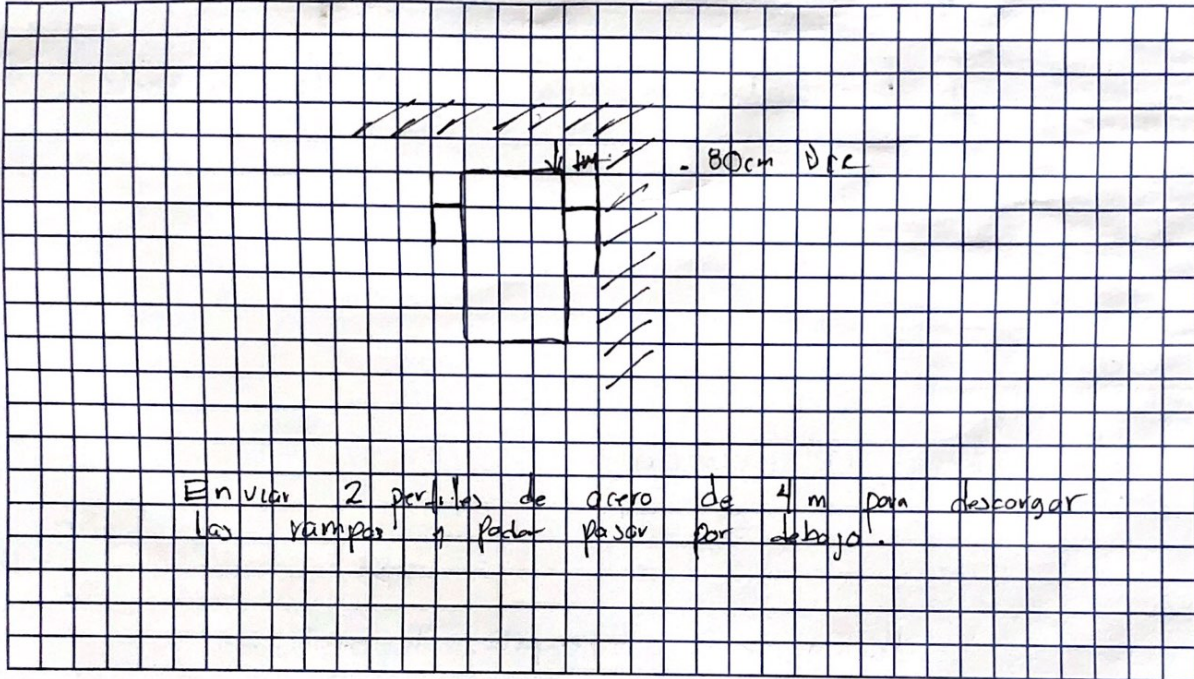 1m
- 80cm
Enviar 2 perfiles de acero de 4 m para descargar
las rampas y poder pasar por debajo.